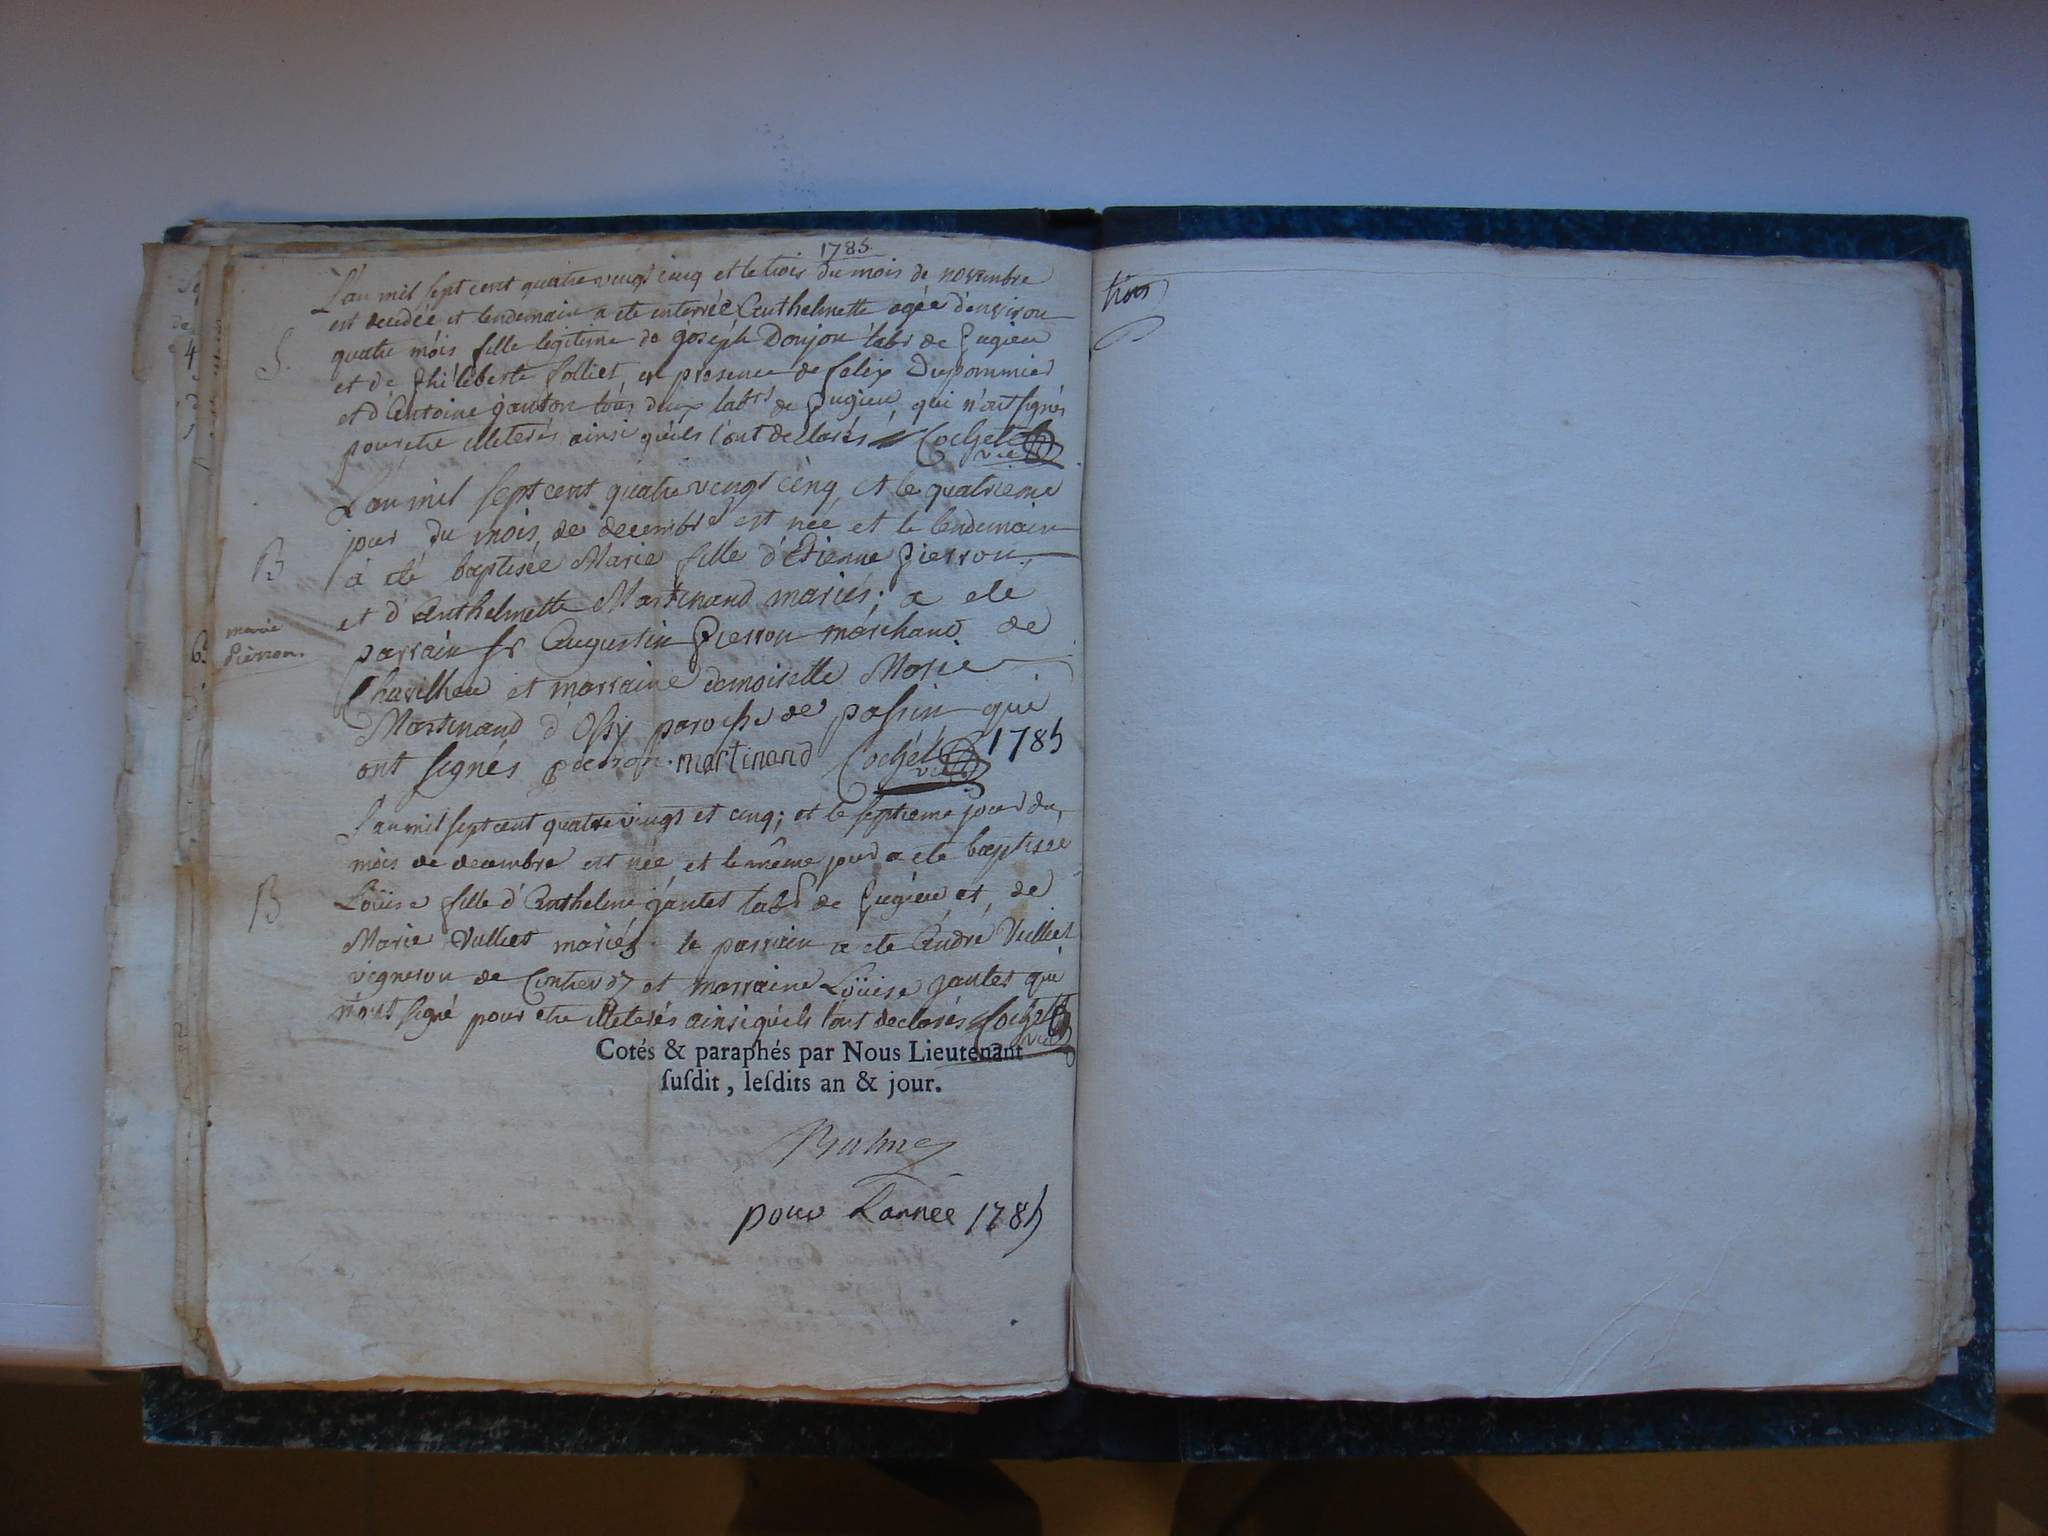 1785.
L'an mil sept cent quatre vingt cinq et le trois du mois de novembre
est decedée et lendemain a ete enterrée Anthelmette agée d'environ
quatre mois fille legitime de joseph Donjon labr de Pugieu
et de Philiberte Folliet, en presence de felix Dupommier
S.
et d'Antoine janton tous deux labrs de Pugieu, qui n'ont signés
pour etre illeterés ainsi qu'ils l'ont declarés Cochet
vic
L'an mil sept cent quatre vengt cinq et le quatrieme
jour du mois de decembre est née et le lendemain
B
à été baptisée Marie fille d'Etienne Pierron
et d'Anthelmette Martinand mariés; a ete
marie
Pierron.
parrain sr Augustin Pierron marchand de
Chavilheu et marraine demoiselle Marie
Martinand d'Ossy paroisse de passin qui
ont signés pierron. martinand Cochet 1785
vic
L'an mil sept cent quatre vingt et cinq; et le septieme jour du
mois de decembre est née, et le même jour a ete baptisée
B
Loüise fille d'Anthelme jantet labr de Pugieu et de
Marie Vulliet mariés le parrain a ete André Vulliet
vigneron de et marraine Loüise jantet qui
n'ont signé pour etre illeterés ainsi qu'ils l'ont declarés Cochet
vic
Cotés & paraphés par Nous Lieutenant
ſuſdit, leſdits an & jour.
Balme
pour Lannée 1785
trois